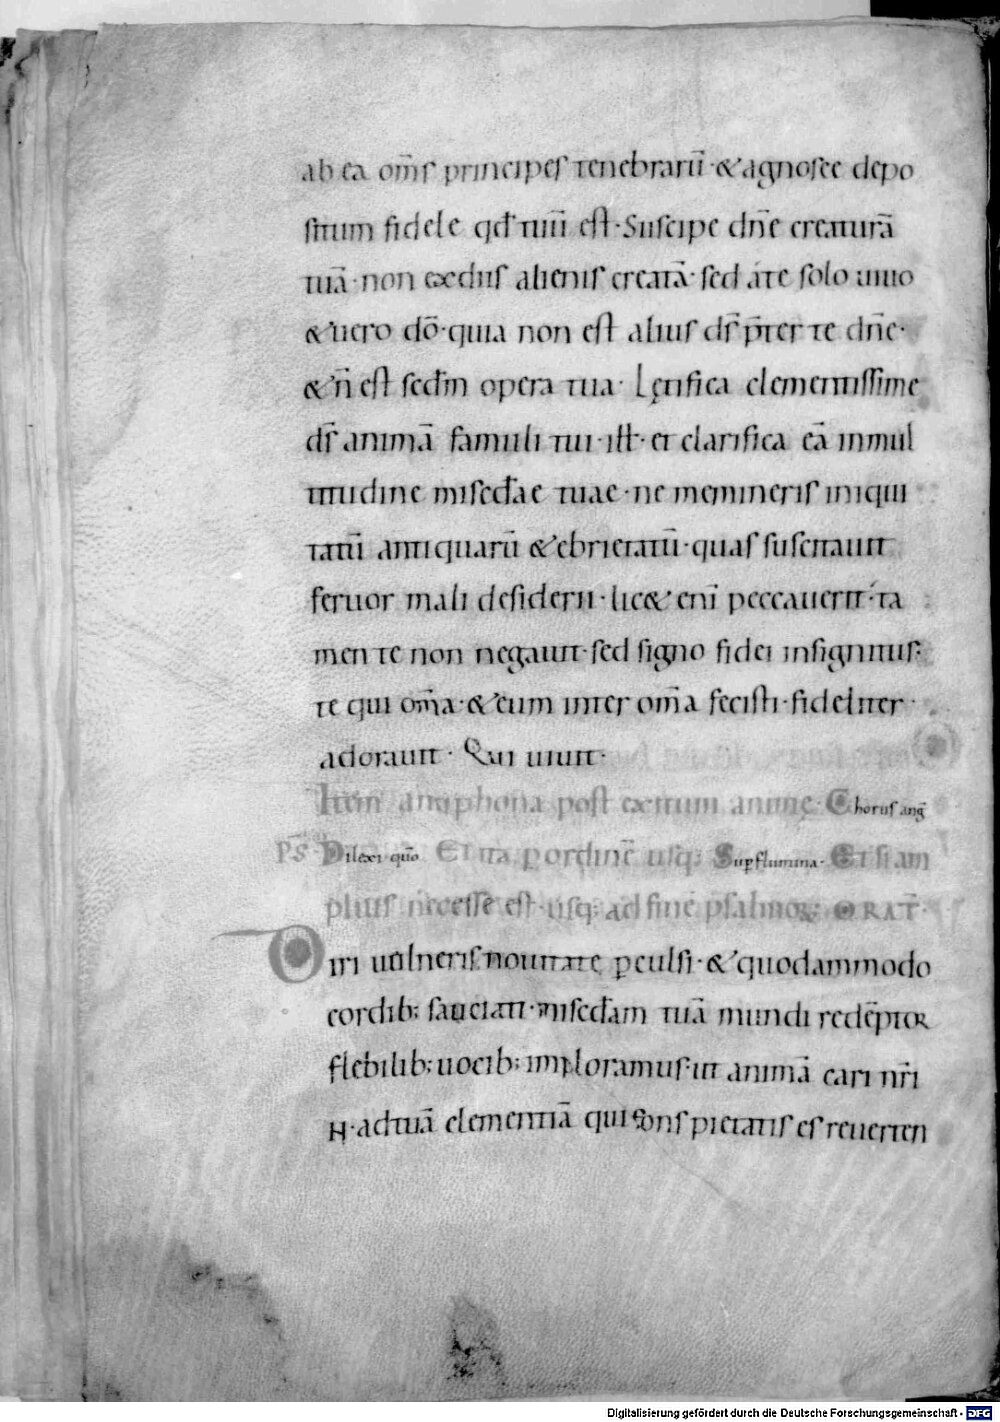 ab ea om̄s principes tenebrarū · & agnosce depo
situm fidele qđ tuū est · Suscipe dn̄e creaturā
tuā · non ex diis alienis creatā · sed a te solo uiuo
& uero dō · quia non est alius ds̄ p̄ter te dn̄e ·
& n̄ est scđm opera tua · Lętifica clementissime
ds̄ animā famuli tui · ill̵ · et clarifica eā in mul
titudine misecđae tuae · ne memineris iniqui
tatū antiquarū & ebrietatū · quas suscitauit
feruor mali desiderii · lic& eni peccauerit · ta
men te non negauit · sed signo fidei insignitus ·
te qui om̄a · & eum inter om̄a fecisti · fideliter ·
adorauit · Qui uiuit ·
Item antiphona post exitum animę · Chorus anḡ
Ps̄ Dilexi quō Et ita p ordinē usq; Sup flumina · Etsi am
plius necesse est · usq; ad finē psalmoꝝ · ORAT̄ ·
Diri uulneris nouitate pculsi · & quodammodo
cordib; sauciati · misecđam tuā mundi redēptor
flebilib; uocib; imploramus · ut animā cari nr̄i
N · ad tuā clementiā qui fons pietatis es reuerten
Digitalisierung gefördert durch die Deutsche Forschungsgemeinschaft - DFG